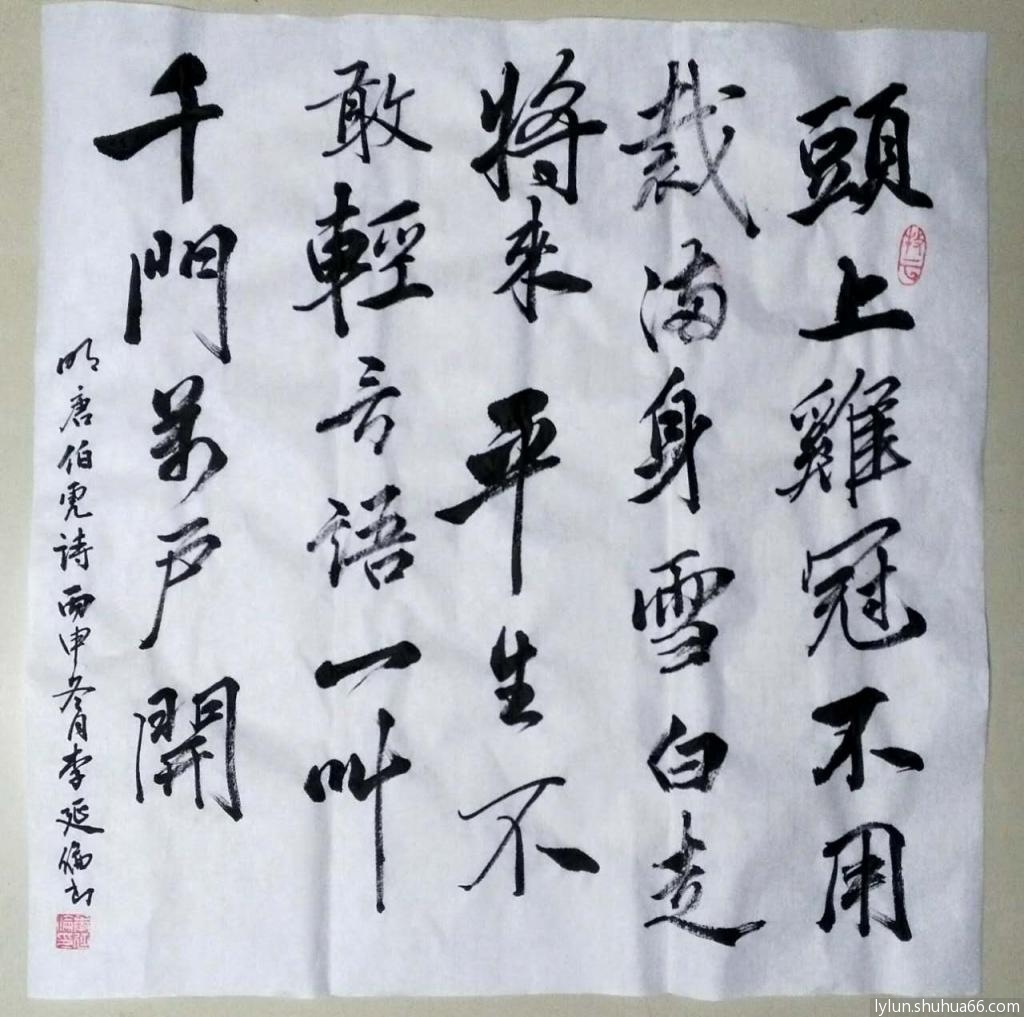 頭上雞冠不用
裁滿身雪白走
將來平生不
敢輕言語一叫
千門萬戶開
明唐伯虎詩丙申冬月李延倫書
lylun.shuhua66.com